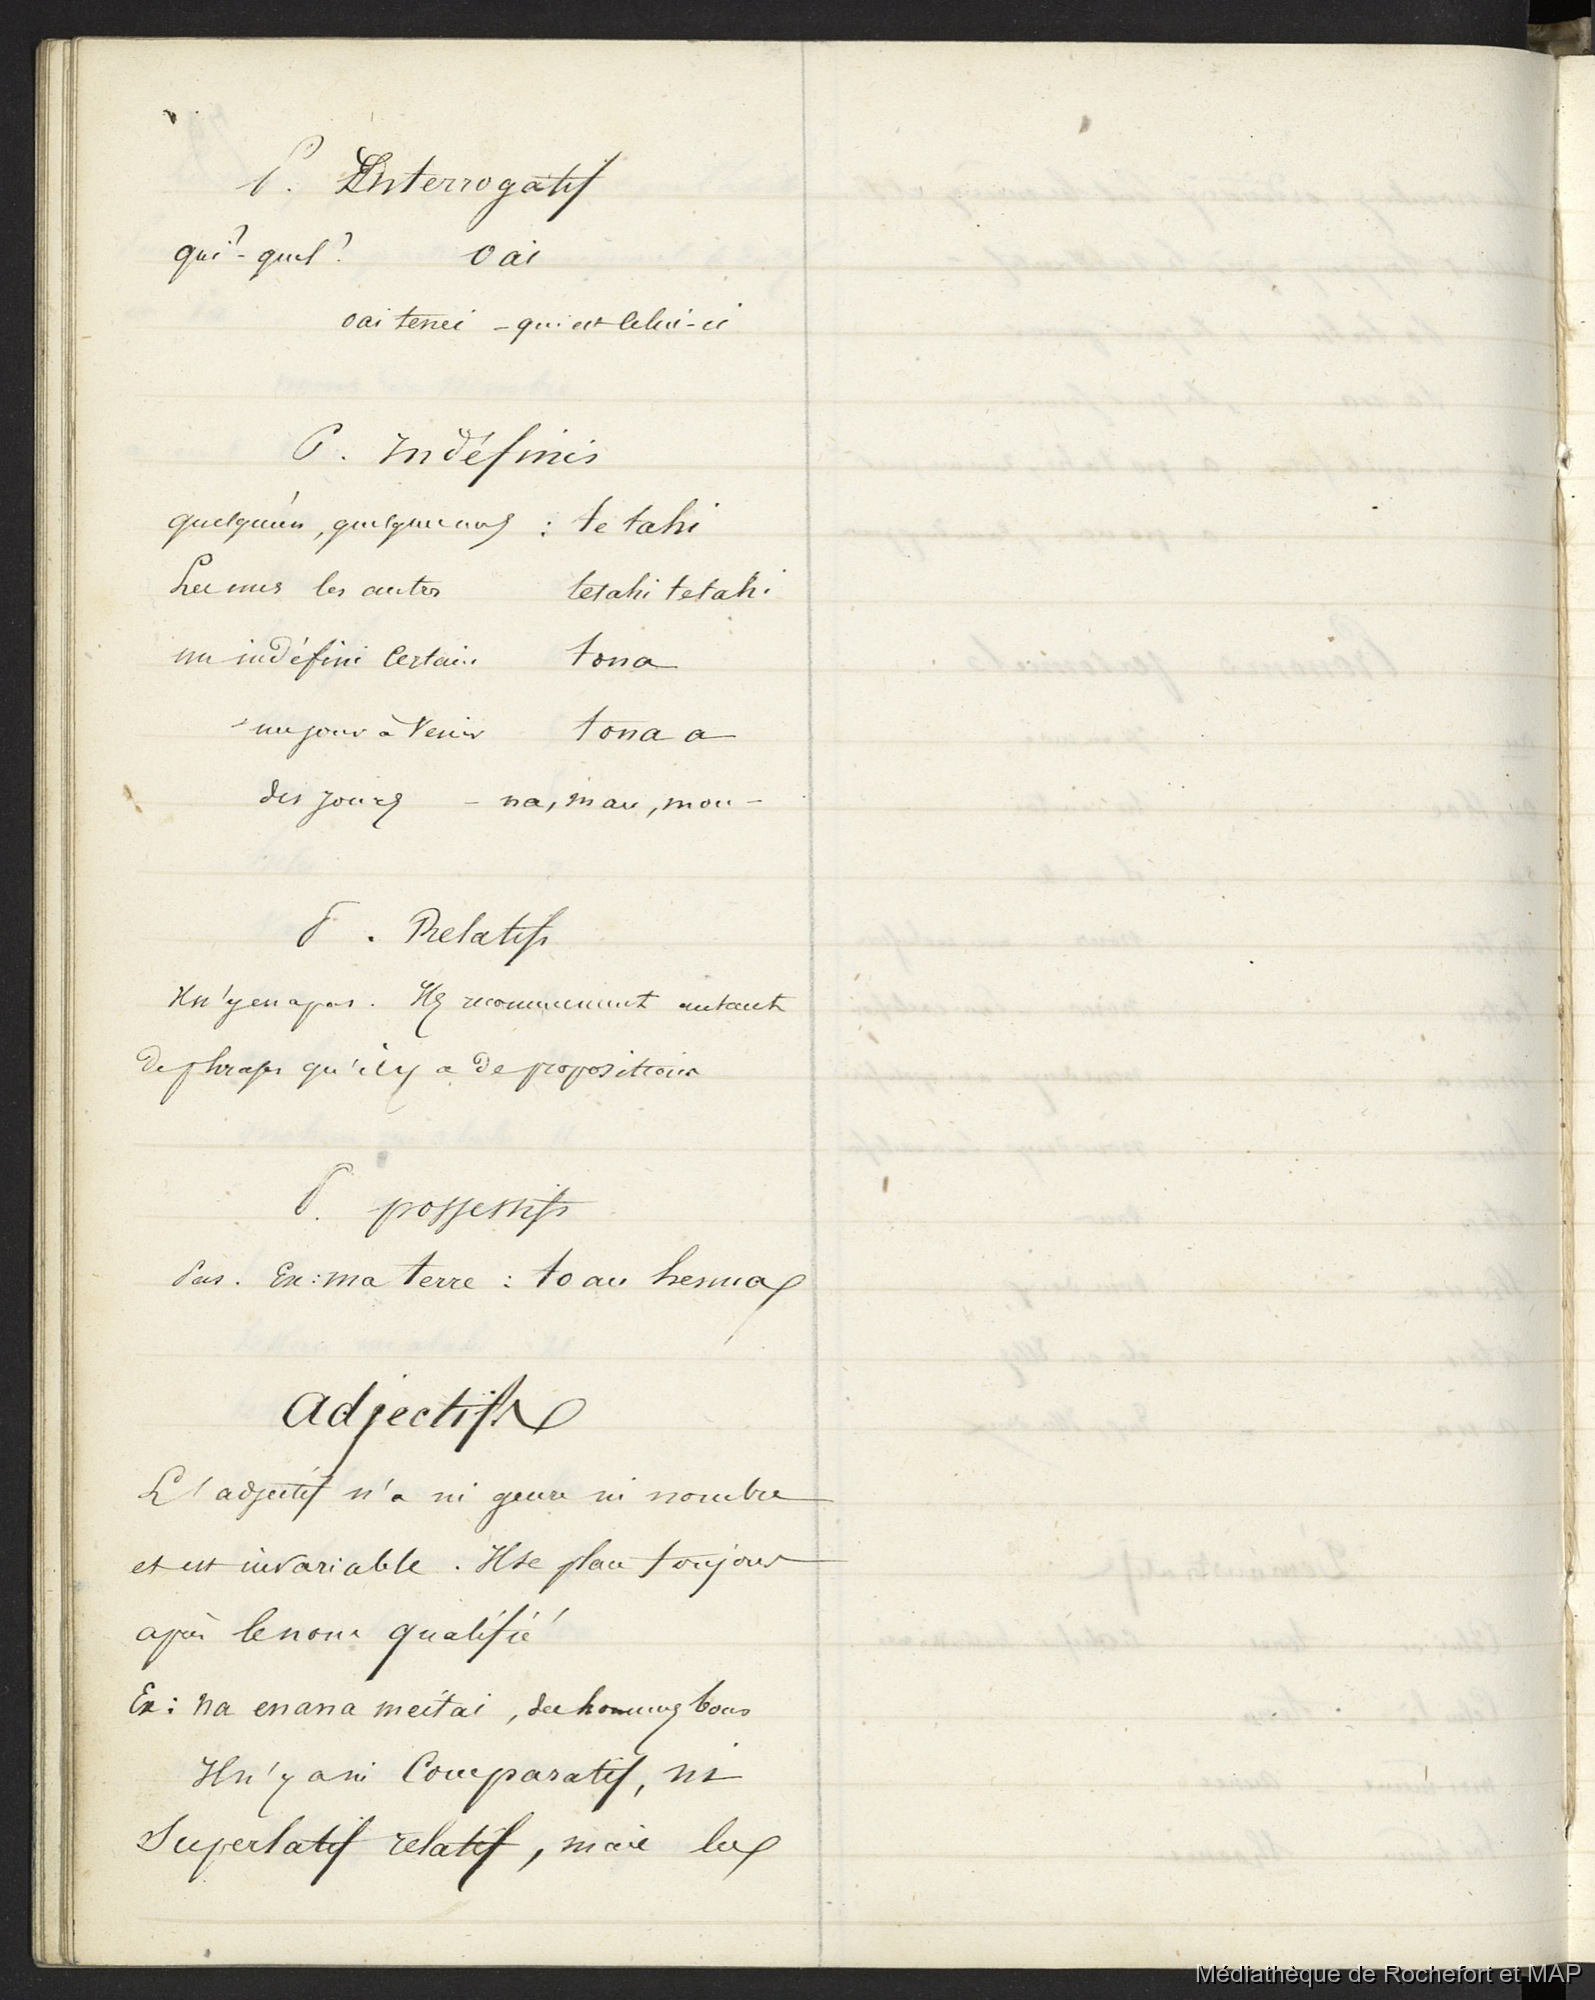 P. Interrogatif
qui? - quel? oai
oai tenei - qui est celui-ci
P. Indéfinis
quelqu'un, quelques uns : te tahi
Les uns les autres tetahi tetahi
un indéfini certain tona
un jour à venir tona a
des jours - na, mau, mou -
P. Relatifs
Il n'y en a pas. Ils recommencent autant
de phrases qu'il y a de propositions
P. possessifs
Pas. Ex: ma terre : to au henua
Adjectifs
L'adjectif n'a ni genre ni nombre
et est invariable. Il se place toujours
après le nom qualifié
Ex: na enana meitai, des hommes bons
Il n'y a ni Comparatif, ni
Superlatif relatif, mais les
Médiathèque de Rochefort et MAP